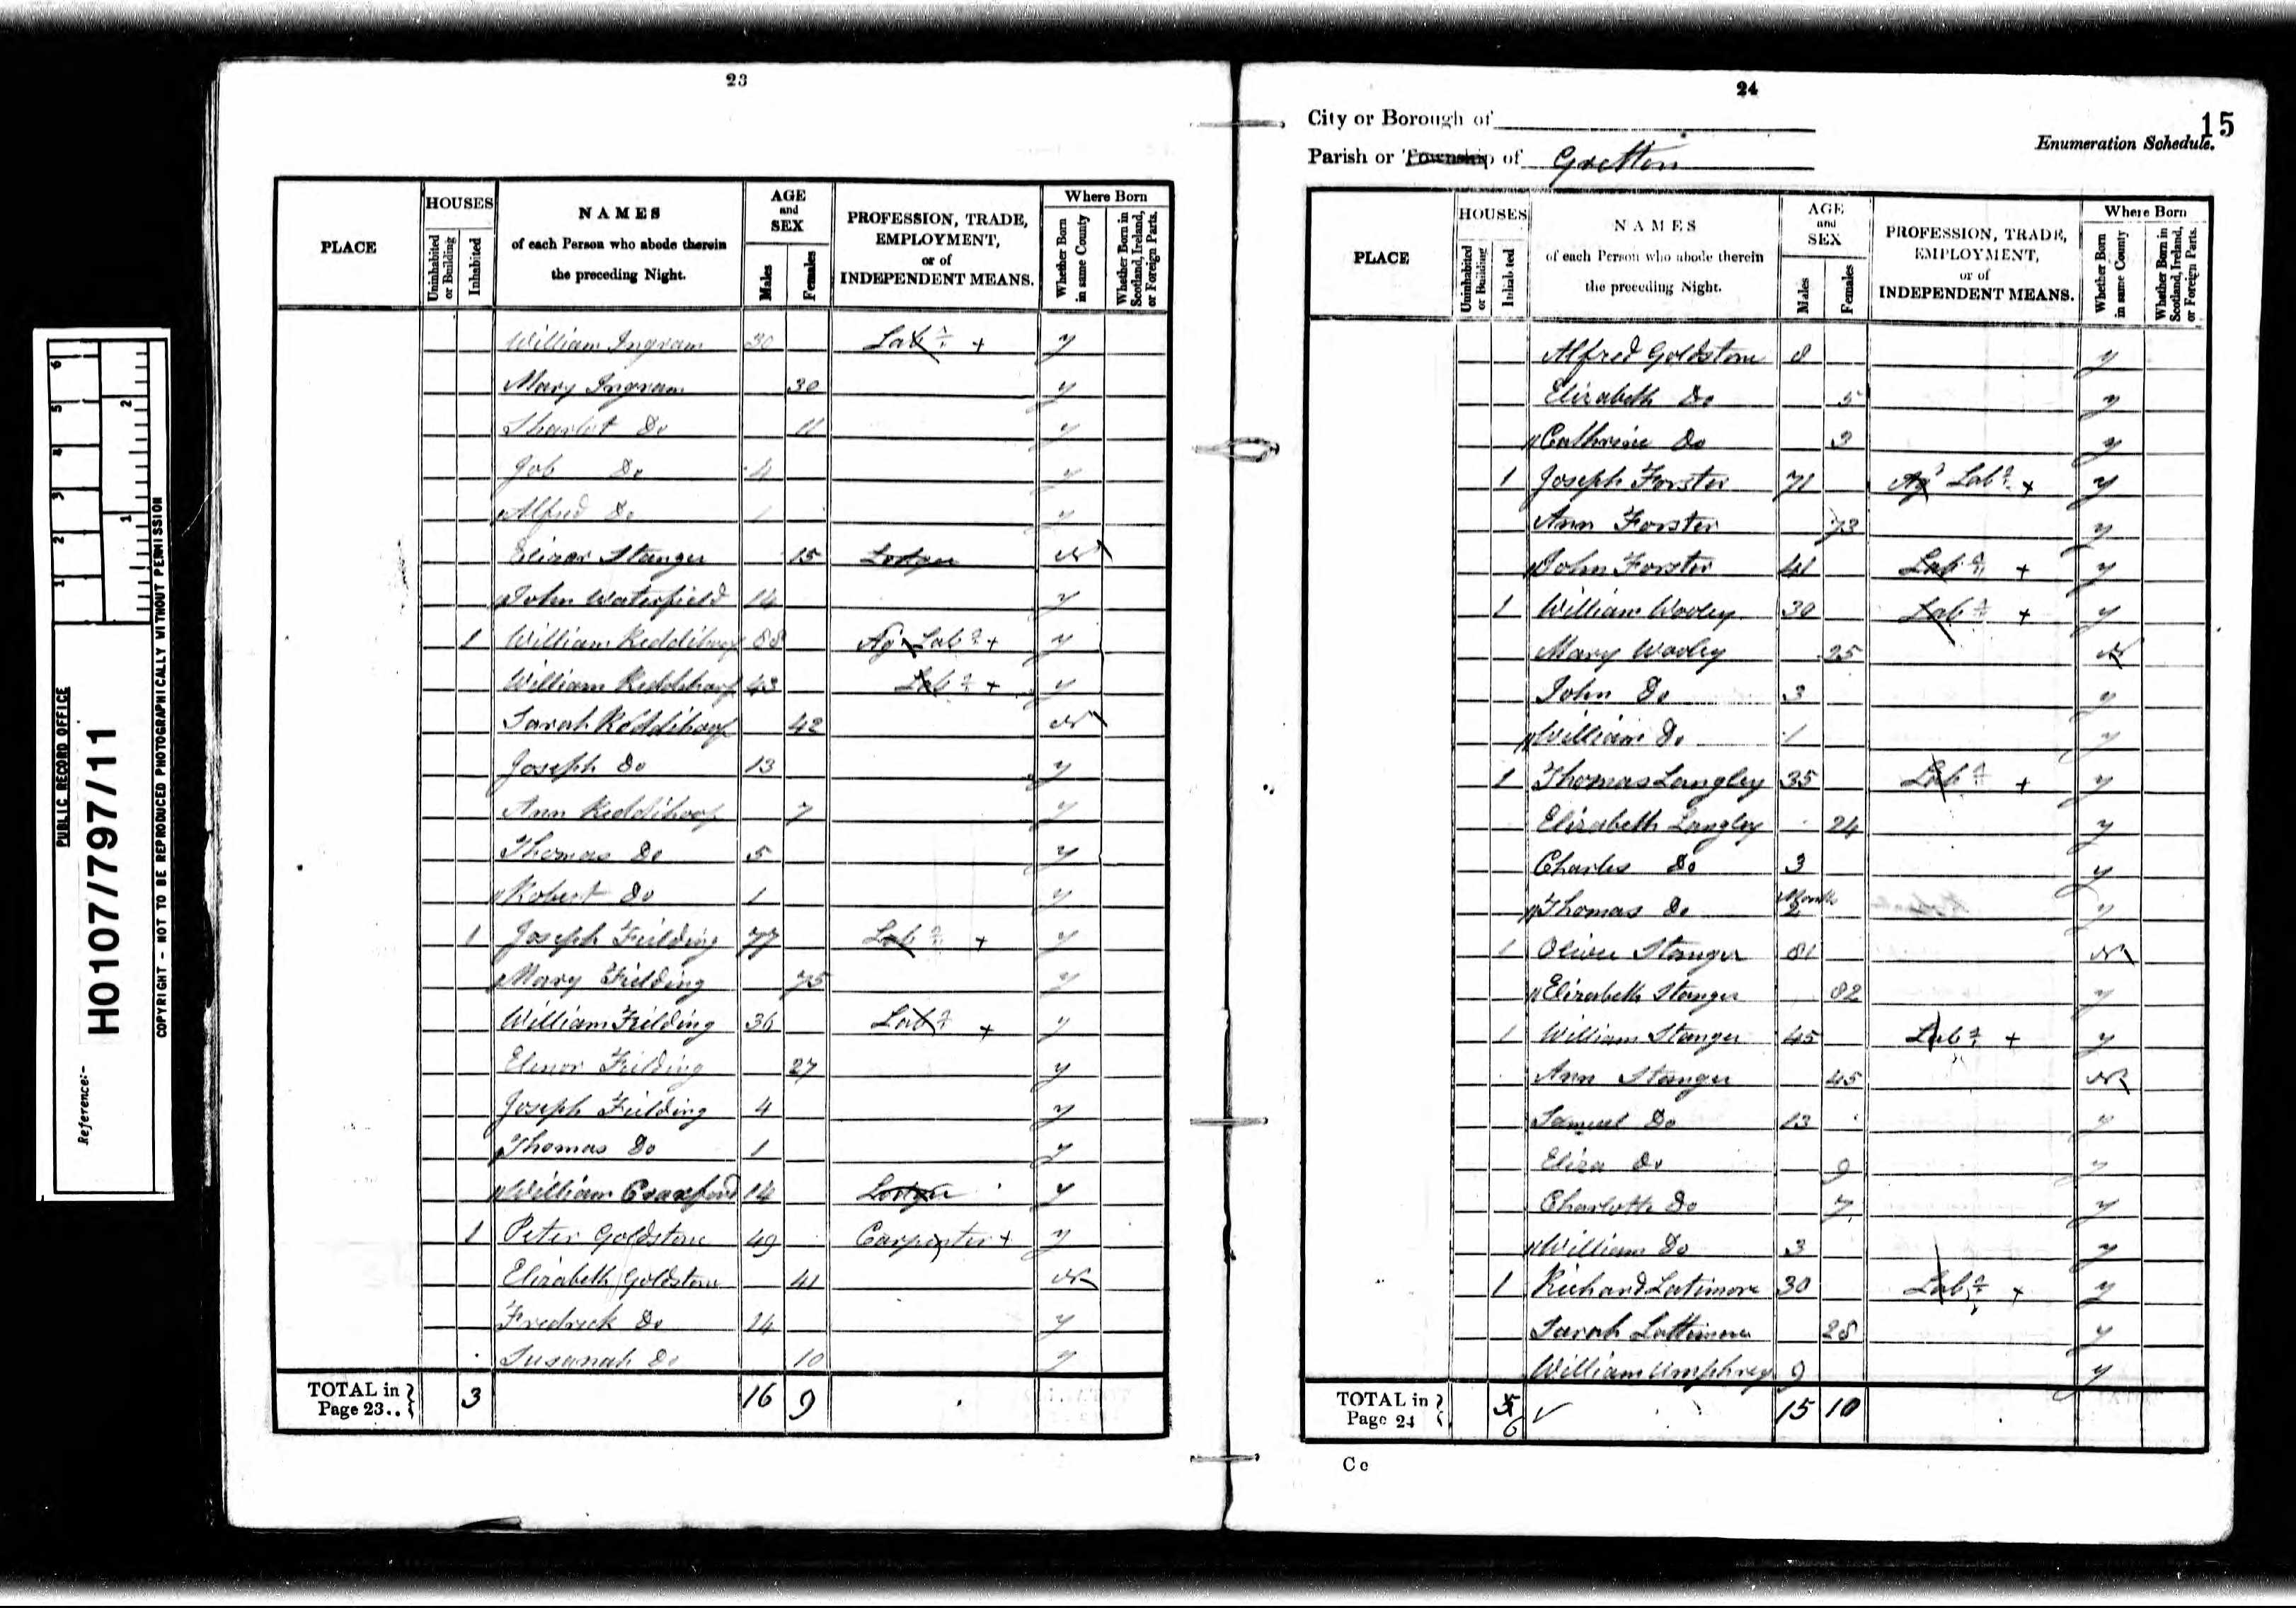 PUBLIC RECORD OFFICE
Reference:- HO107/797/11
COPYRIGHT - NOT TO BE REPRODUCED PHOTOGRAPHICALLY WITHOUT PERMISSION
1 2 3 4 5 6
1 2
23
PLACE HOUSES NAMES of each Person who abode therein the preceding Night. AGE and SEX PROFESSION, TRADE, EMPLOYMENT, or of INDEPENDENT MEANS. Where Born
Uninhabited or Building Inhabited Males Females Whether Born in same County Whether Born in Scotland, Ireland, or Foreign Parts.
William Ingram 30 Labr + y
Mary Ingram 30 y
Sharlot Do 11 y
Job Do 4 y
Alfred Do 1 y
Elinor Stanger 15 Lodger N
John Waterfield 14 y
1 William Reddihoof 88 Ag Labr + y
William Reddihoof 43 Labr + y
Sarah Reddihoof 42 N
Joseph Do 13 y
Ann Reddihoof 7 y
Thomas Do 5 y
Robert Do 1 y
1 Joseph Feilding 77 Labr + y
Mary Fielding 75 y
William Feilding 36 Labr + y
Elenor Feilding 27 y
Joseph Feilding 4 y
Thomas Do 1 y
William Coaxford 14 Lodger y
1 Peter Goldstone 49 Carpenter + y
Elizabeth Goldstone 41 N
Fredrick Do 14 y
Susanah Do 10 y
TOTAL in Page 23.. 3 16 9
24
15
City or Borough of
Enumeration Schedule.
Parish or Township of Gretton
PLACE HOUSES NAMES of each Person who abode therein the preceding Night. AGE and SEX PROFESSION, TRADE, EMPLOYMENT, or of INDEPENDENT MEANS. Where Born
Uninhabited or Building Inhabited Males Females Whether Born in same County Whether Born in Scotland, Ireland, or Foreign Parts.
Alfred Goldstone 8 y
Elizabeth Do 5 y
Cathrine Do 3 y
1 Joseph Forster 71 Ag Labr + y
Ann Forster 73 y
John Forster 41 Labr + y
1 William Wooley 30 Labr + y
Mary Wooley 25 N
John Do 3 y
William Do 1 y
1 Thomas Langley 35 Labr + y
Elizabeth Langley 24 y
Charles Do 3 y
Thomas Do Month 2 y
1 Oliver Stanger 81 N
Elizabeth Stanger 82 y
1 William Stanger 45 Labr + y
Ann Stanger 45 N
Samuel Do 13 y
Eliza Do 9 y
Charlotte Do 7 y
William Do 3 y
1 Richard Latimore 30 Labr + y
Sarah Lattimore 28 y
William Umphrey 9 y
TOTAL in Page 24 5 6 15 10
C c